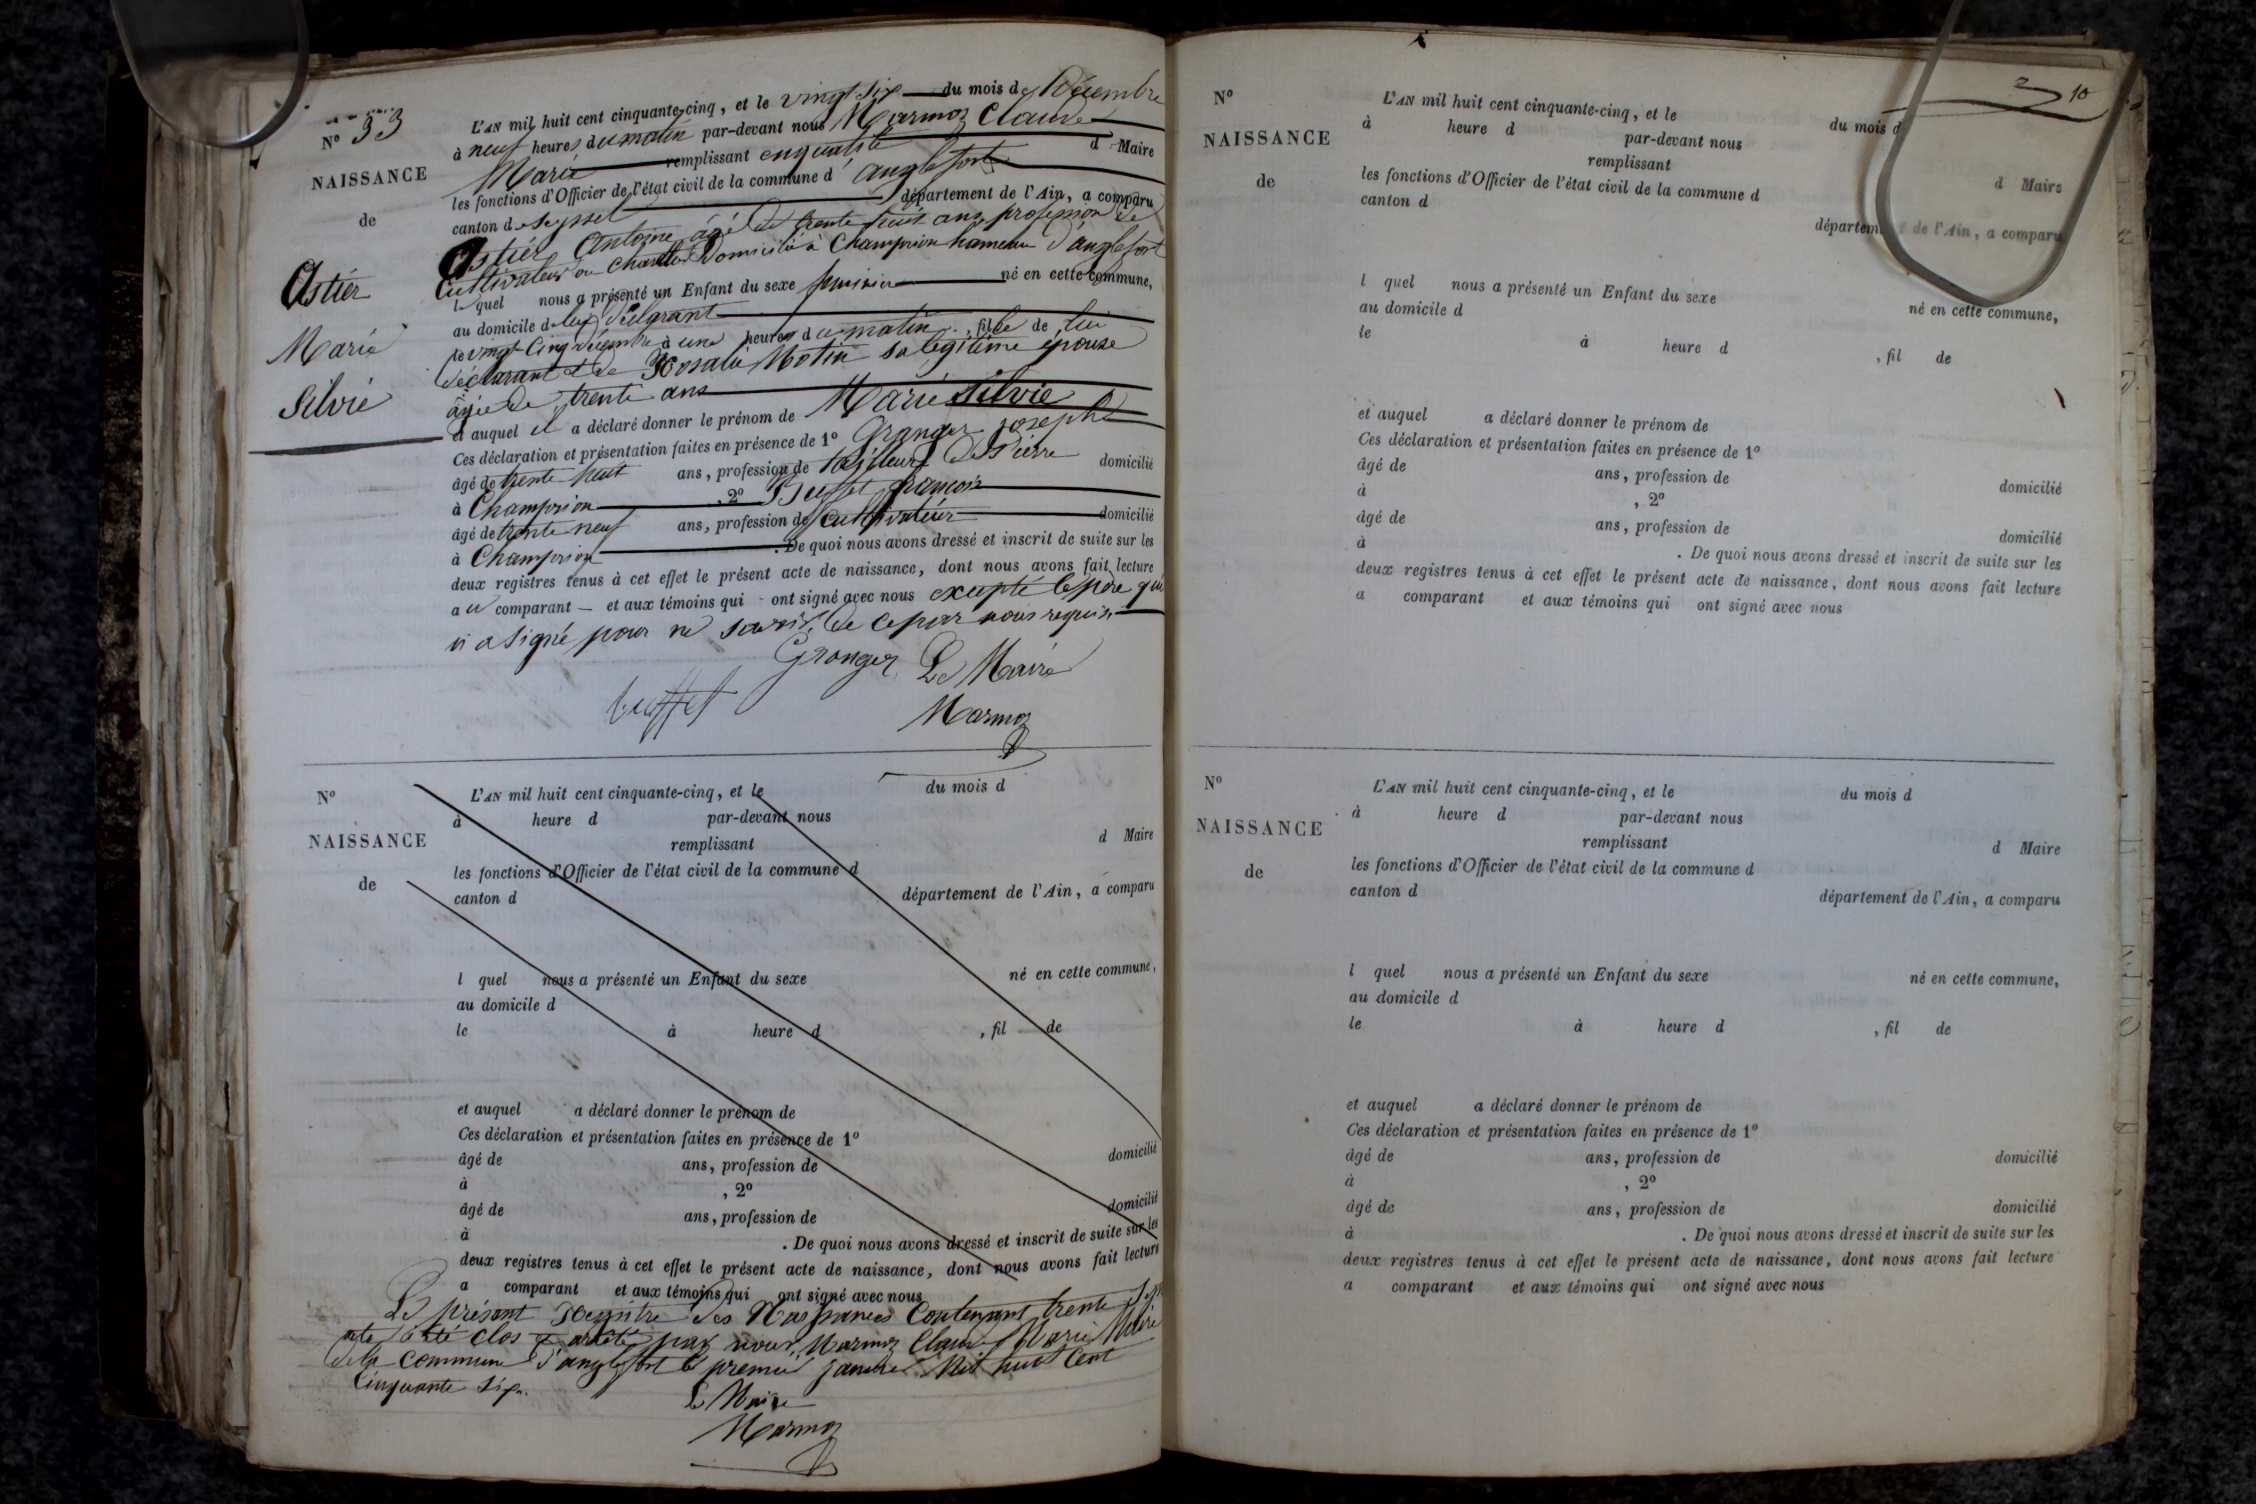 N° 33
NAISSANCE
de
Astier
Marie
Silvie
L'AN mil huit cent cinquante-cinq, et le vingt six du mois de Décembre
à neuf heures du matin par-devant nous Marmoz Claude
Marie remplissant en qualité d Maire
les fonctions d'Officier de l'état civil de la commune d'anglefort
canton de Seyssel département de l'Ain, a comparu
Astier Antoine âgé de trente huit ans profession de
Cultivateur Domicilié à Champrion hameau d'anglefort
lequel nous a présenté un Enfant du sexe féminin né en cette commune,
au domicile de lui déclarant
le vingt Cinq décembre à une heures du matin, fille de lui
déclarant & de Rosalie Motin sa légitime épouse
agée de trente ans
et auquel il a déclaré donner le prénom de Marie Silvie
Ces déclaration et présentation faites en présence de 1° Granger joseph
âgé de trente huit ans, profession de tailleur De Pierre domicilié
à Champrion, 2° Buffet françois
âgé de trente neuf ans, profession de cultivateur domicilié
à Champrion. De quoi nous avons dressé et inscrit de suite sur les
deux registres tenus à cet effet le présent acte de naissance, dont nous avons fait lecture
au comparant et aux témoins qui ont signé avec nous excepté le père qui
n'a signé pour ne savoir, de ce par nous requis
Granger Le Maire
buffet
Marmoz
N°
NAISSANCE
de
L'AN mil huit cent cinquante-cinq, et le du mois d
à heure d par-devant nous
remplissant d Maire
les fonctions d'Officier de l'état civil de la commune d
canton d département de l'Ain, a comparu
l quel nous a présenté un Enfant du sexe né en cette commune,
au domicile d
le à heure d , fil de
et auquel a déclaré donner le prénom de
Ces déclaration et présentation faites en présence de 1°
âgé de ans, profession de domicilié
à , 2°
âgé de ans, profession de domicilié
à . De quoi nous avons dressé et inscrit de suite sur les
deux registres tenus à cet effet le présent acte de naissance, dont nous avons fait lecture
a comparant et aux témoins qui ont signé avec nous
Le présent Registre des Naissances Contenant trente
acte a été clos & arrêté par nous, Marmoz Claude Marie Maire
de la commune d'anglefort le premier janvier Mil huit Cent
Cinquante six.
Le Maire
Marmoz
10
N°
NAISSANCE
de
L'AN mil huit cent cinquante-cinq, et le du mois d
à heure d par-devant nous
remplissant d Maire
les fonctions d'Officier de l'état civil de la commune d
canton d département de l'Ain, a comparu
l quel nous a présenté un Enfant du sexe né en cette commune,
au domicile d
le à heure d , fil de
et auquel a déclaré donner le prénom de
Ces déclaration et présentation faites en présence de 1°
âgé de ans, profession de domicilié
à , 2°
âgé de ans, profession de domicilié
à . De quoi nous avons dressé et inscrit de suite sur les
deux registres tenus à cet effet le présent acte de naissance, dont nous avons fait lecture
a comparant et aux témoins qui ont signé avec nous
N°
NAISSANCE
de
L'AN mil huit cent cinquante-cinq, et le du mois d
à heure d par-devant nous
remplissant d Maire
les fonctions d'Officier de l'état civil de la commune d
canton d département de l'Ain, a comparu
l quel nous a présenté un Enfant du sexe né en cette commune,
au domicile d
le à heure d , fil de
et auquel a déclaré donner le prénom de
Ces déclaration et présentation faites en présence de 1°
âgé de ans, profession de domicilié
à , 2°
âgé de ans, profession de domicilié
à . De quoi nous avons dressé et inscrit de suite sur les
deux registres tenus à cet effet le présent acte de naissance, dont nous avons fait lecture
a comparant et aux témoins qui ont signé avec nous